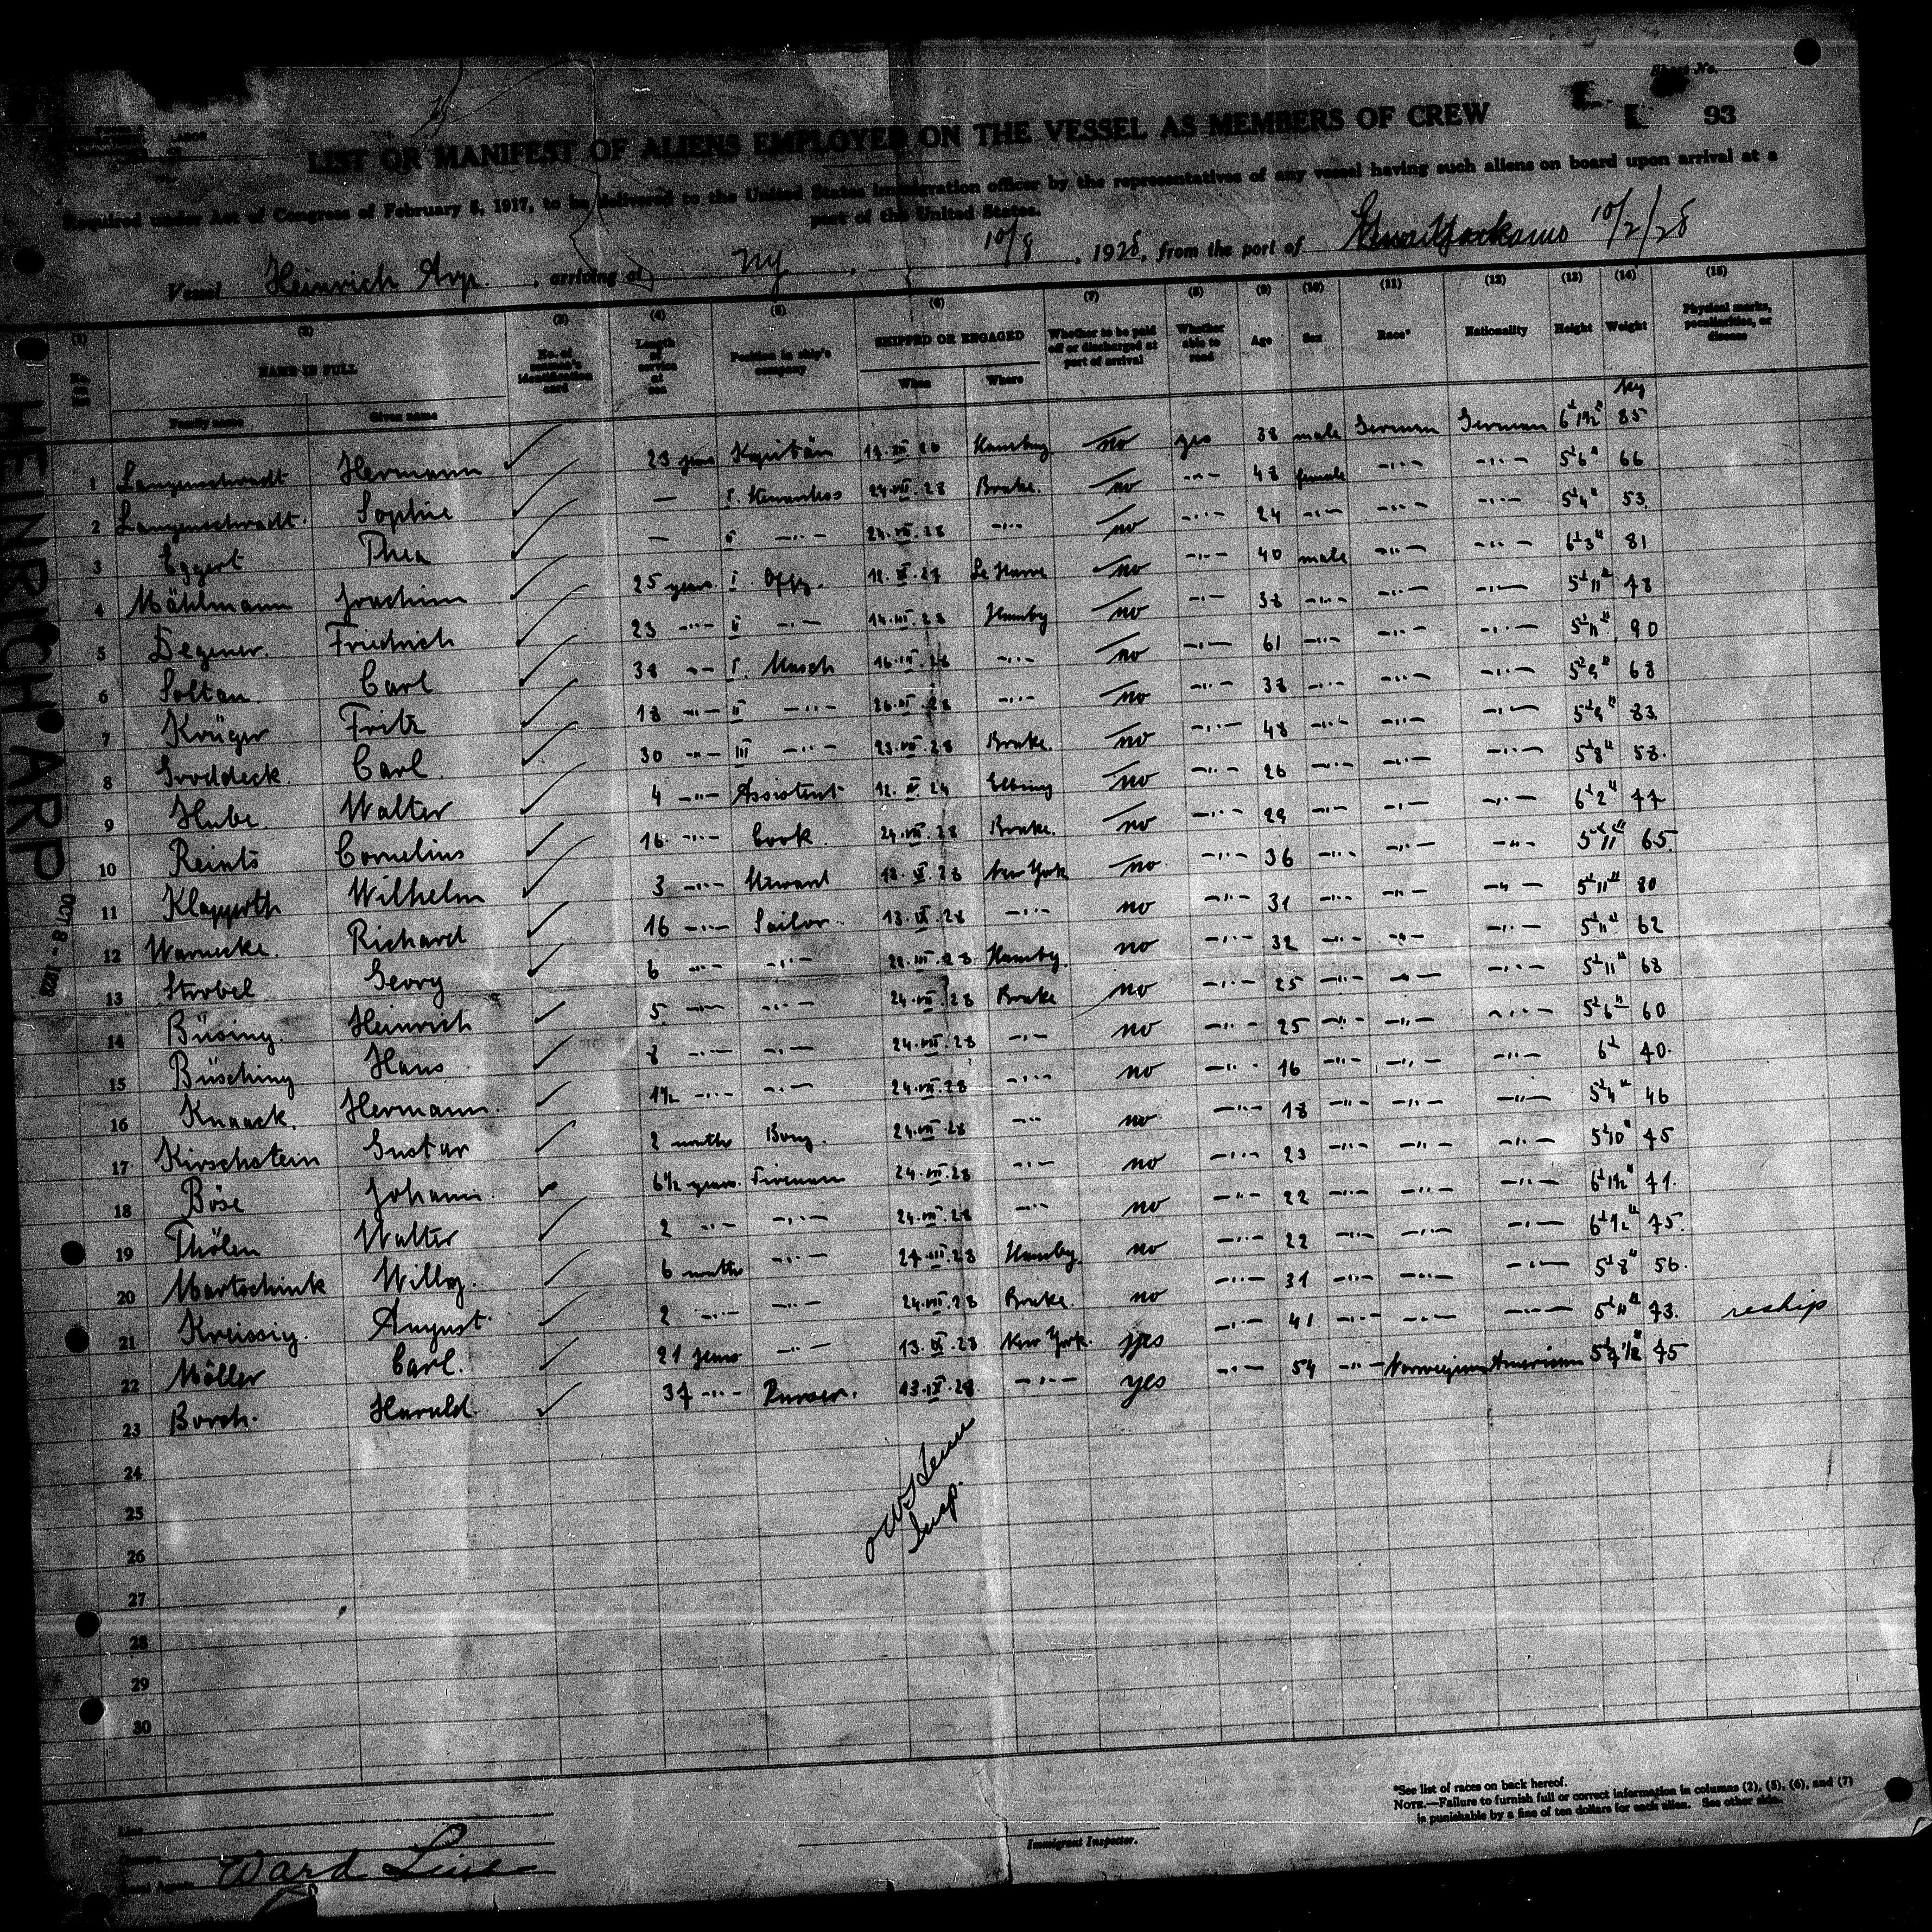 Sheet No.
E 93
LIST OR MANIFEST OF ALIENS EMPLOYED ON THE VESSEL AS MEMBERS OF CREW
Required under Act of Congress of February 5, 1917, to be delivered to the United States immigration officer by the representatives of any vessel having such aliens on board upon arrival at a
port of the United States.
Vessel Heinrich Arp. , arriving at NY , 10/8 , 1928, from the port of 10/2/28
(1) (2) (3) (4) (5) (6) (7) (8) (9) (10) (11) (12) (13) (14) (15)
No. on list NAME IN FULL No. of seaman's identification card Length of service at sea Position in ship's company SHIPPED OR ENGAGED Whether to be paid off or discharged at port of arrival Whether able to read Age Sex Race* Nationality Height Weight Physical marks, peculiarities, or disease
Family name Given name When Where
kg
1 Langenschwadt Hermann 23 years Kapitän Hamburg no yes 38 male German German 6' 1½" 85
2 Langenschwadt. Sophie — I. Stewardess 24.VII.28 Brake. no -"- 48 female -"- -"- 5' 6" 66
3 Eggert Thea — II -"- 24.VII.28 -"- no -"- 24 -"- -"- -"- 5' 4" 53.
4 Mählmann Joachim 25 years. I. Offz. Le Havre no -"- 40 male -"- -"- 6' 3" 81
5 Degener. Friedrich 23 -"- II -"- 14.III.28 Hambg no -"- 38 -"- -"- -"- 5' 11" 78
6 Soltau. Carl 38 -"- I. Masch 16.III.28 -"- no -"- 61 -"- -"- -"- 5' 11" 90
7 Krüger Fritz 18 -"- II -"- 26.III.28 -"- no -"- 38 -"- -"- -"- 5' 9" 68
8 Groddeck. Carl 30 -"- III -"- 23.VII.28 Brake. no -"- 48 -"- -"- -"- 5' 9" 83.
9 Hube. Walter 4 -"- Assistent Elbing no -"- 26 -"- -"- -"- 5' 8" 58.
10 Reints Cornelius 16 -"- Cook 24.VII.28 Brake. no -"- 29 -"- -"- -"- 6' 2" 77
11 Klapproth Wilhelm 3 -"- Steward New York no -"- 36 -"- -"- -"- 5' 11" 65.
12 Warnecke. Richard 16 -"- Sailor 13. -"- no -"- 31 -"- -"- -"- 5' 11" 80
13 Strobel Georg 6 -"- -"- Hambg. no -"- 32 -"- -"- -"- 5' 11" 62
14 Büsing. Heinrich 5 -"- -"- 24.VII.28 Brake no -"- 25 -"- -"- -"- 5' 11" 68
15 Büsching Hans 8 -"- -"- 24.VII.28 -"- no -"- 25 -"- -"- -"- 5' 6" 60
16 Knaack. Hermann. 1½ -"- -"- 24.VII.28 -"- no -"- 16 -"- -"- -"- 6' 70.
17 Kirschstein Gustav 2 months Boy. 24.VII.28 -"- no -"- 18 -"- -"- -"- 5' 4" 46
18 Böse Johann. 6½ years. Fireman 24.VII.28 -"- no -"- 23 -"- -"- -"- 5' 10" 75
19 Thölen Walter 2 -"- -"- 24.VII.28 -"- no -"- 22 -"- -"- -"- 6' 1½" 71.
20 Martschink Willy. 6 months -"- 27.III.28 Hambg. no -"- 22 -"- -"- -"- 6' ½" 75.
21 Kreissig. August. 2 -"- -"- 24.VII.28 Brake. no -"- 31 -"- -"- -"- 5' 8" 56.
22 Möller Carl. 21 years -"- 13.IX.28 New York. yes -"- 41 -"- -"- -"- 5' 11" 73. reship
23 Borch. Harald. 37 -"- Purser. 13.IX.28. -"- yes -"- 54 -"- Norwegian American 5' 7½" 75
24
25
26
27
28
29
30
Insp.
HEINRICH ARP
OCT 8 - 1928
*See list of races on back hereof.
NOTE.—Failure to furnish full or correct information in columns (2), (5), (6), and (7)
is punishable by a fine of ten dollars for each alien. See other side.
Immigrant Inspector.
Ward Line